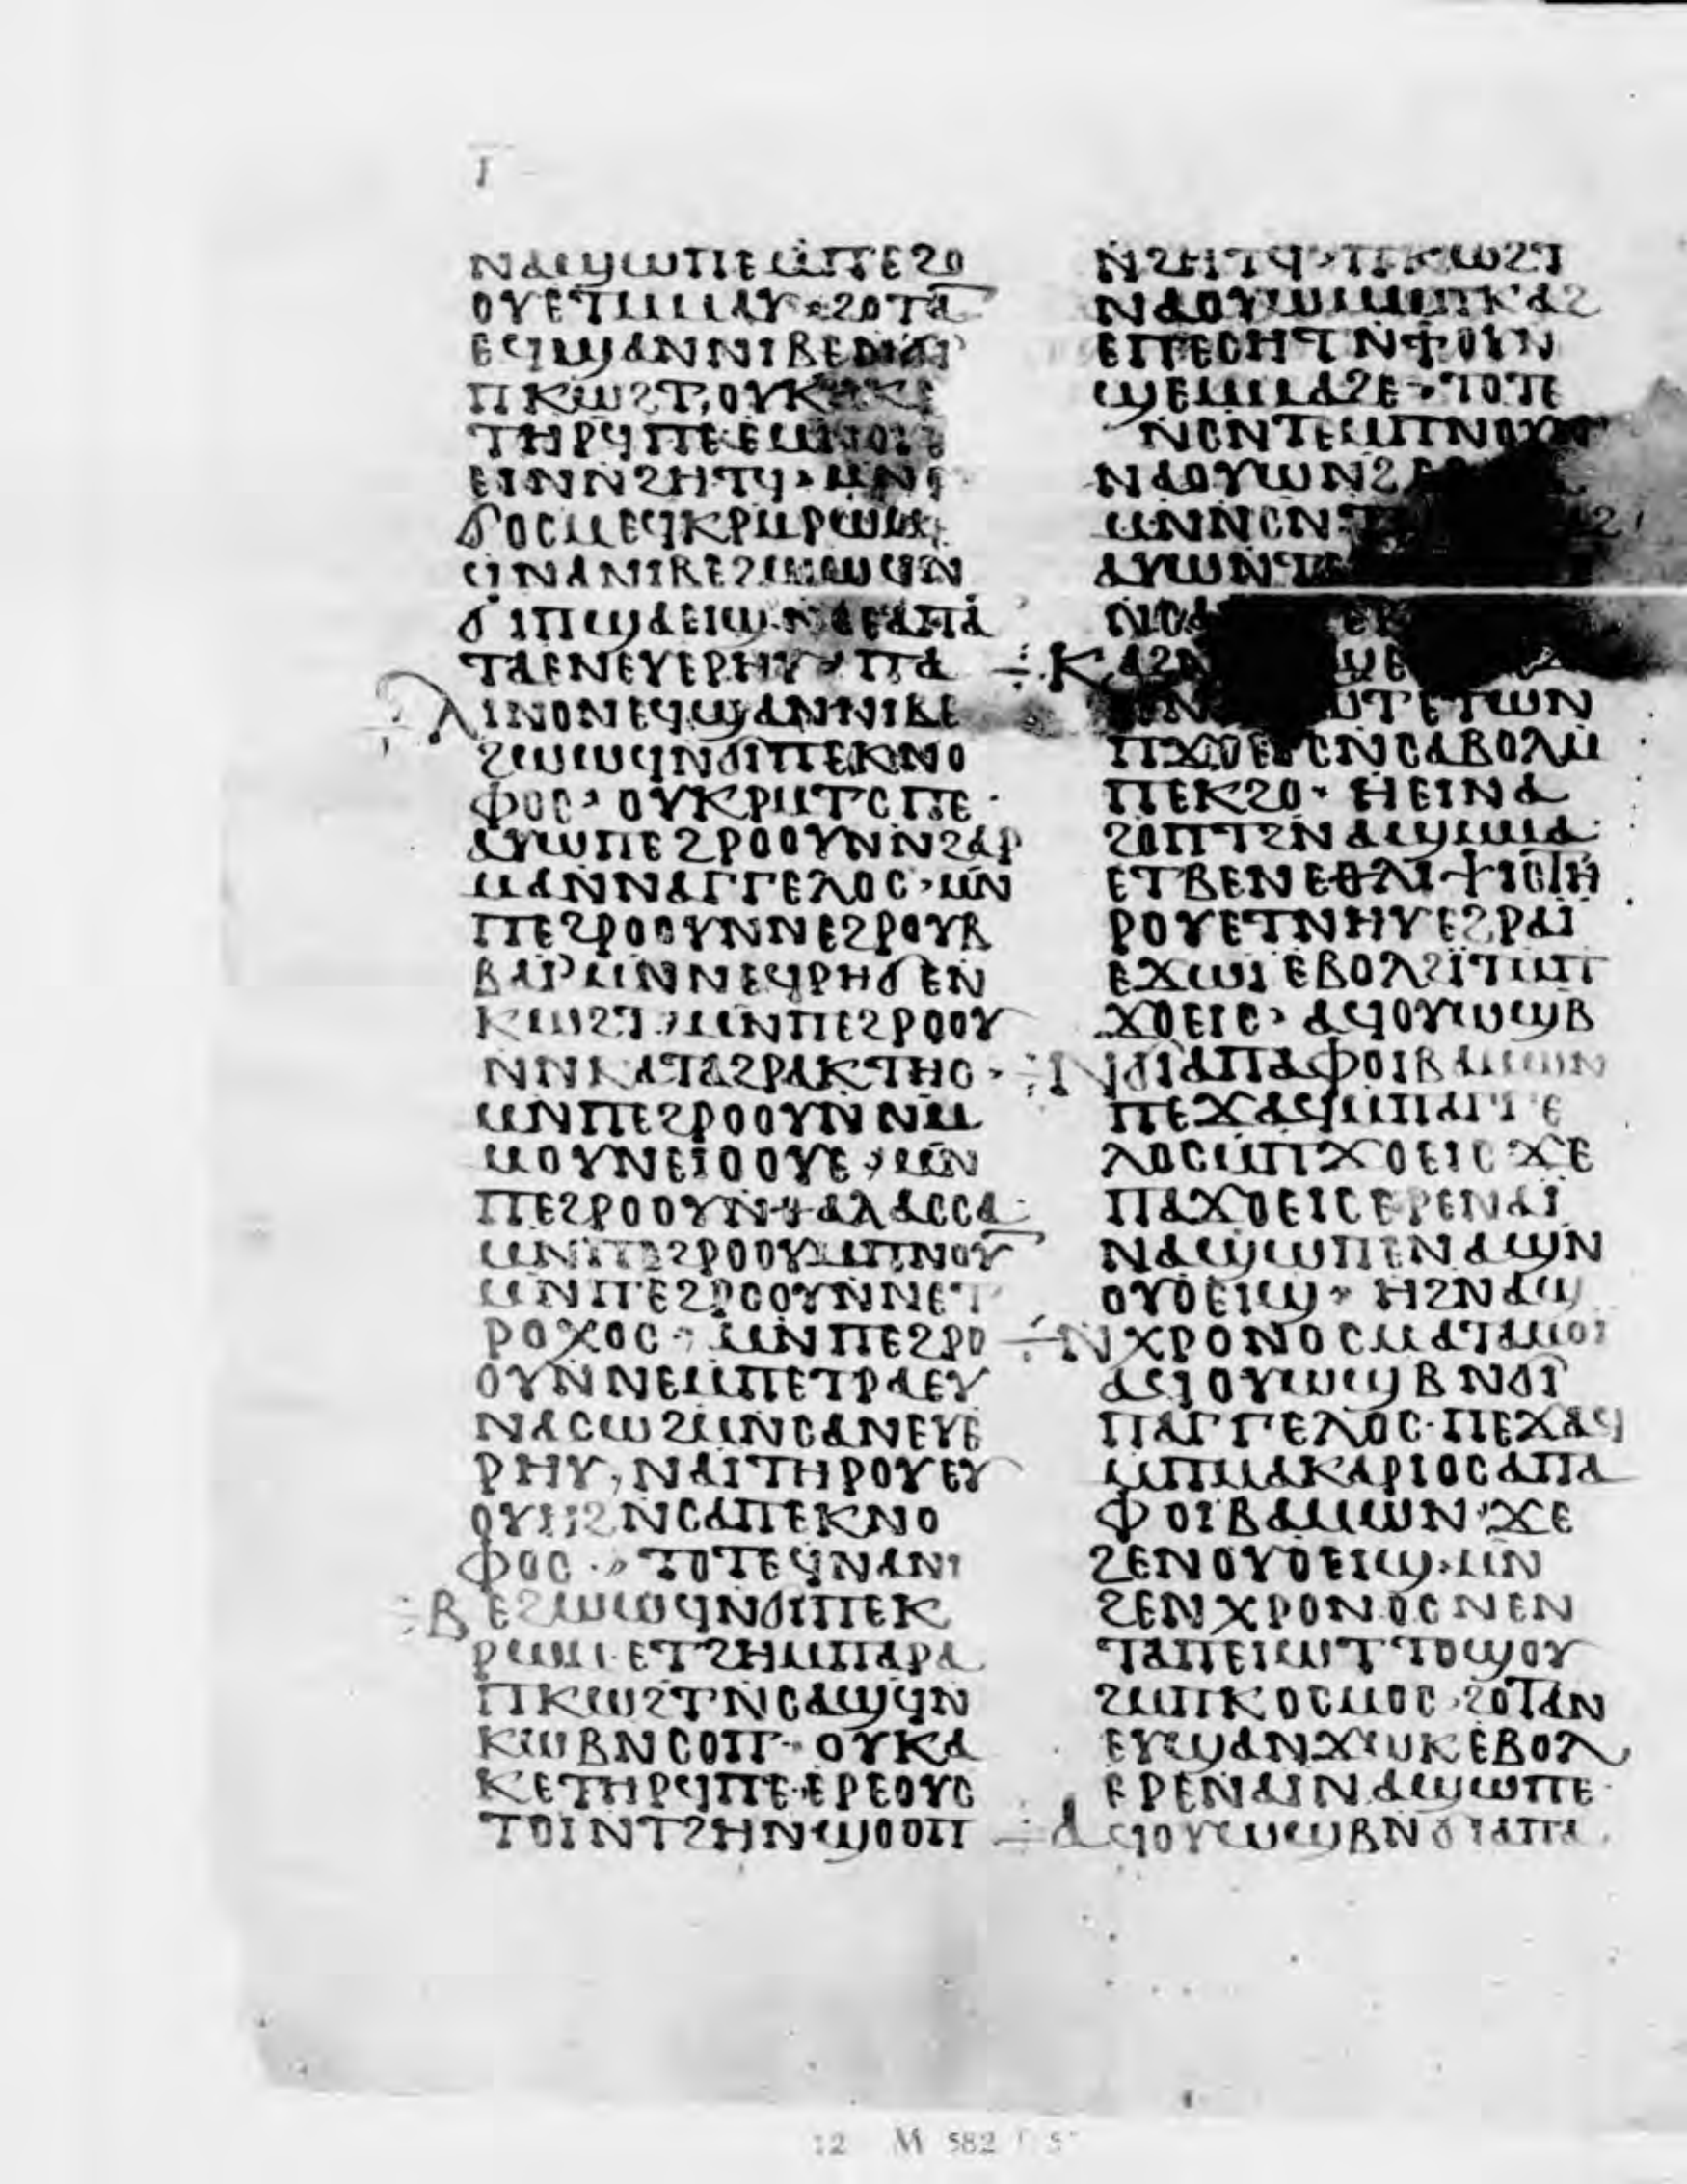 ⲓ̅
ⲛⲁϣⲱⲡⲉⲙ̄ⲡⲉϩⲟ
ⲟⲩⲉⲧⲙⲙⲁⲩ·ϩⲟⲧⲁ̅
ⲉϥϣⲁⲛⲛⲓⲃⲉ
ⲡⲕⲱϩⲧ,ⲟⲩⲕⲁⲕⲉ
ⲧⲏⲣϥⲡⲉ·ⲉⲙⲛⲟⲩ
ⲉⲓⲛⲛϩⲏⲧϥ·ⲙⲛ
ϭⲟⲥⲙⲉϥⲕⲣⲙⲣⲱⲙ
ϥⲛⲁⲛⲓⲃⲉϩⲱⲱϥⲛ
ϭⲓⲡϣⲁⲉⲓϣ·ⲛⲑⲉⲁⲡⲁ
ⲧⲁⲉⲛⲉⲩⲉⲣⲏⲩ·ⲡⲁ
ⲗⲓⲛⲟⲛⲉϥϣⲁⲛⲛⲓⲃⲉ
ϩⲱⲱϥⲛϭⲓⲡⲉⲕⲛⲟ
ⲫⲟⲥ·ⲟⲩⲕⲣⲙⲧⲥⲡⲉ·
ⲁⲩⲱⲡⲉϩⲣⲟⲟⲩⲛⲛϩⲁⲣ
ⲙⲁⲛⲛⲁⲅⲅⲉⲗⲟⲥ·ⲙⲛ̄
ⲡⲉϩⲣⲟⲟⲩⲛⲛⲉϩⲣⲟⲩⲃ
ⲃⲁⲓ̈ⲙⲛⲛⲉϥⲣⲏϭⲉⲛ
ⲕⲱϩⲧ·ⲙⲛⲡⲉϩⲣⲟⲟⲩ
ⲛⲛⲕⲁⲧⲁϩⲣⲁⲕⲧⲏⲥ·
ⲙⲛⲡⲉϩⲣⲟⲟⲩⲛⲛⲙ
ⲙⲟⲩⲛⲉⲓⲟⲟⲩⲉ·ⲙⲛ̄
ⲡⲉϩⲣⲟⲟⲩⲛⲑⲁⲗⲁⲥⲥⲁ·
ⲙⲛⲡⲉϩⲣⲟⲟⲩⲙⲡⲛⲟⲩ̅
ⲙⲛⲡⲉϩⲣⲟⲟⲩⲛⲛⲉⲧ
ⲣⲟⲭⲟⲥ·ⲙⲛⲡⲉϩⲣⲟ
ⲟⲩⲛⲛⲉⲙⲡⲉⲧⲣⲁⲉⲩ
ⲛⲁⲥⲱϩⲙⲛⲥⲁⲛⲉⲩⲉ
ⲣⲏⲩ,ⲛⲁⲓⲧⲏⲣⲟⲩⲉⲩ
ⲟⲩⲏϩⲛⲥⲁⲡⲉⲕⲛⲟ
ⲫⲟⲥ·ⲧⲟⲧⲉϥⲛⲁⲛⲓ
ⲃⲉϩⲱⲱϥⲛϭⲓⲡⲉⲕ
ⲣⲱⲙⲉⲧϩⲏⲙⲡⲁⲣⲁ
ⲡⲕⲱϩⲧⲛⲥⲁϣϥⲛ
ⲕⲱⲃⲛⲥⲟⲡ·ⲟⲩⲕⲁ
ⲕⲉⲧⲏⲣϥⲡⲉ·ⲉⲣⲉⲟⲩⲥ
ⲧⲟⲓⲛⲧϩⲏⲛϣⲟⲟⲡ
ⲛ̄ϩⲏⲧϥ·ⲡⲕⲱϩⲧ
ⲛⲁⲟⲩⲱⲙⲙⲡⲕⲁϩ
ⲉⲡⲉⲥⲏⲧⲛϥⲟⲩⲛ
ϣⲉⲙⲙⲁϩⲉ·ⲧⲟⲧⲉ
ⲛⲥⲛⲧⲉⲙⲡⲛⲟⲩⲛ
ⲛⲁⲟⲩⲱⲛϩ
ⲙⲛⲛⲥⲛⲧ
ⲁⲩⲱⲛⲧ
ⲛⲥⲁ
ⲕⲁϩ
ⲱⲧⲉⲧⲱⲛ
ⲡϫⲟⲉⲓⲥⲛⲥⲁⲃⲟⲗⲙ
ⲡⲉⲕϩⲟ·ⲏⲉⲓⲛⲁ
ϩⲟⲡⲧϩⲛⲁϣⲙⲙⲁ·
ⲉⲧⲃⲉⲛⲉⲑⲗⲓⲯⲓⲥⲧⲏ
ⲣⲟⲩⲉⲧⲛⲏⲩⲉϩⲣⲁⲓ̈
ⲉϫⲱⲓⲉⲃⲟⲗϩⲓⲧⲙⲡ
ϫⲟⲉⲓⲥ·ⲁϥⲟⲩⲱϣⲃ
ⲛϭⲓⲁⲡⲁⲫⲟⲓⲃⲁⲙⲱⲛ
ⲡⲉϫⲁϥⲙⲡⲁⲅⲅⲉ
ⲗⲟⲥⲙⲡϫⲟⲉⲓⲥϫⲉ
ⲡⲁϫⲟⲉⲓⲥⲉⲣⲉⲛⲁⲓ̈
ⲛⲁϣⲱⲡⲉⲛⲁϣⲛ
ⲟⲩⲟⲉⲓϣ·ⲏϩⲛⲁϣ
ⲛⲭⲣⲟⲛⲟⲥⲙⲁⲧⲁⲙⲟⲓ
ⲁϥⲟⲩⲱϣⲃⲛϭⲓ̈
ⲡⲁⲅⲅⲉⲗⲟⲥ·ⲡⲉϫⲁϥ
ⲙⲡⲙⲁⲕⲁⲣⲓⲟⲥⲁⲡⲁ
ⲫⲟⲓⲃⲁⲙⲱⲛ·ϫⲉ
ϩⲉⲛⲟⲩⲟⲉⲓϣ·ⲙⲛ
ϩⲉⲛⲭⲣⲟⲛⲟⲥⲛⲉⲛ
ⲧⲁⲡⲉⲓⲱⲧⲧⲟϣⲟⲩ
ϩⲙⲡⲕⲟⲥⲙⲟⲥ·ϩⲟⲧⲁⲛ
ⲉⲩϣⲁⲛϫⲱⲕⲉⲃⲟⲗ
ⲉⲣⲉⲛⲁⲓⲛⲁϣⲱⲡⲉ·
ⲁϥⲟⲩⲱϣⲃⲛϭⲓⲁⲡⲁ
12 M 582 f 5